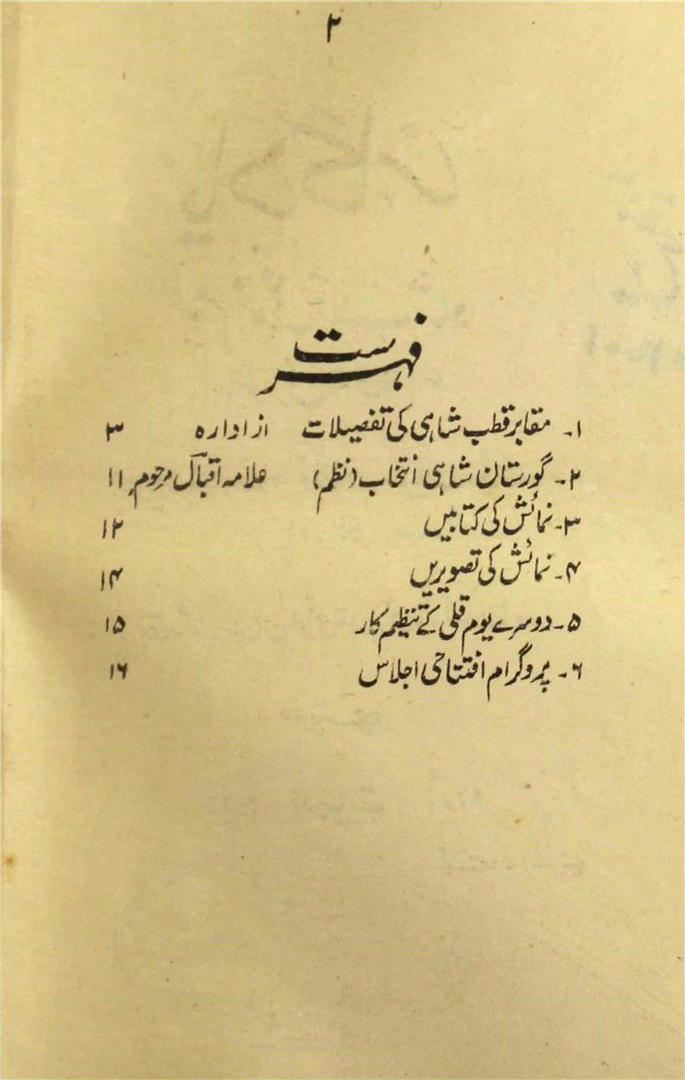 ۲
فہرست
۱۔ مقابر قطب شاہی کی تفصیلات از ادارہ ۳
۲۔ گورستان شاہی انتخاب (نظم) علامہ اقبال مرحوم ۱۱
۳۔ نمائش کی کتابیں ۱۲
۴۔ نمائش کی تصویریں ۱۴
۵۔ دوسرے یوم قلی کے تنظیم کار ۱۵
۶۔ پروگرام افتتاحی اجلاس ۱۶